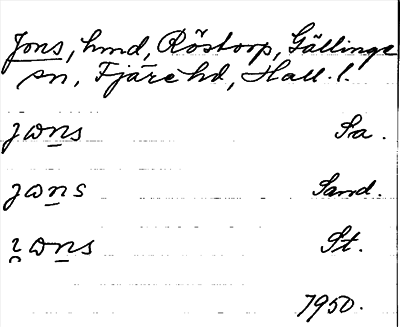 Jons, hmd, Röstorp, Gällinge
sn, Fjäre hd, Hall. l.
jωns Sa.
jωns Sand.
i̯ωns St.
1950.